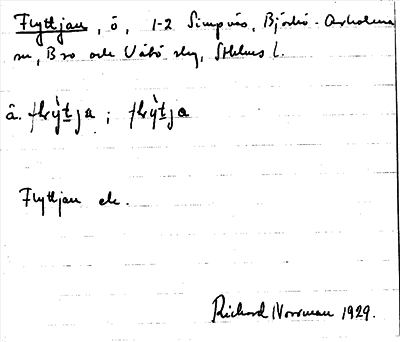 Flyttjan, ö, 1-2 Simpnäs, Björkö-Arholma
sn, Bro och Vätö skg, Sthlms l.
å. 
Flyttjan ek.
Richard Norrman 1929.